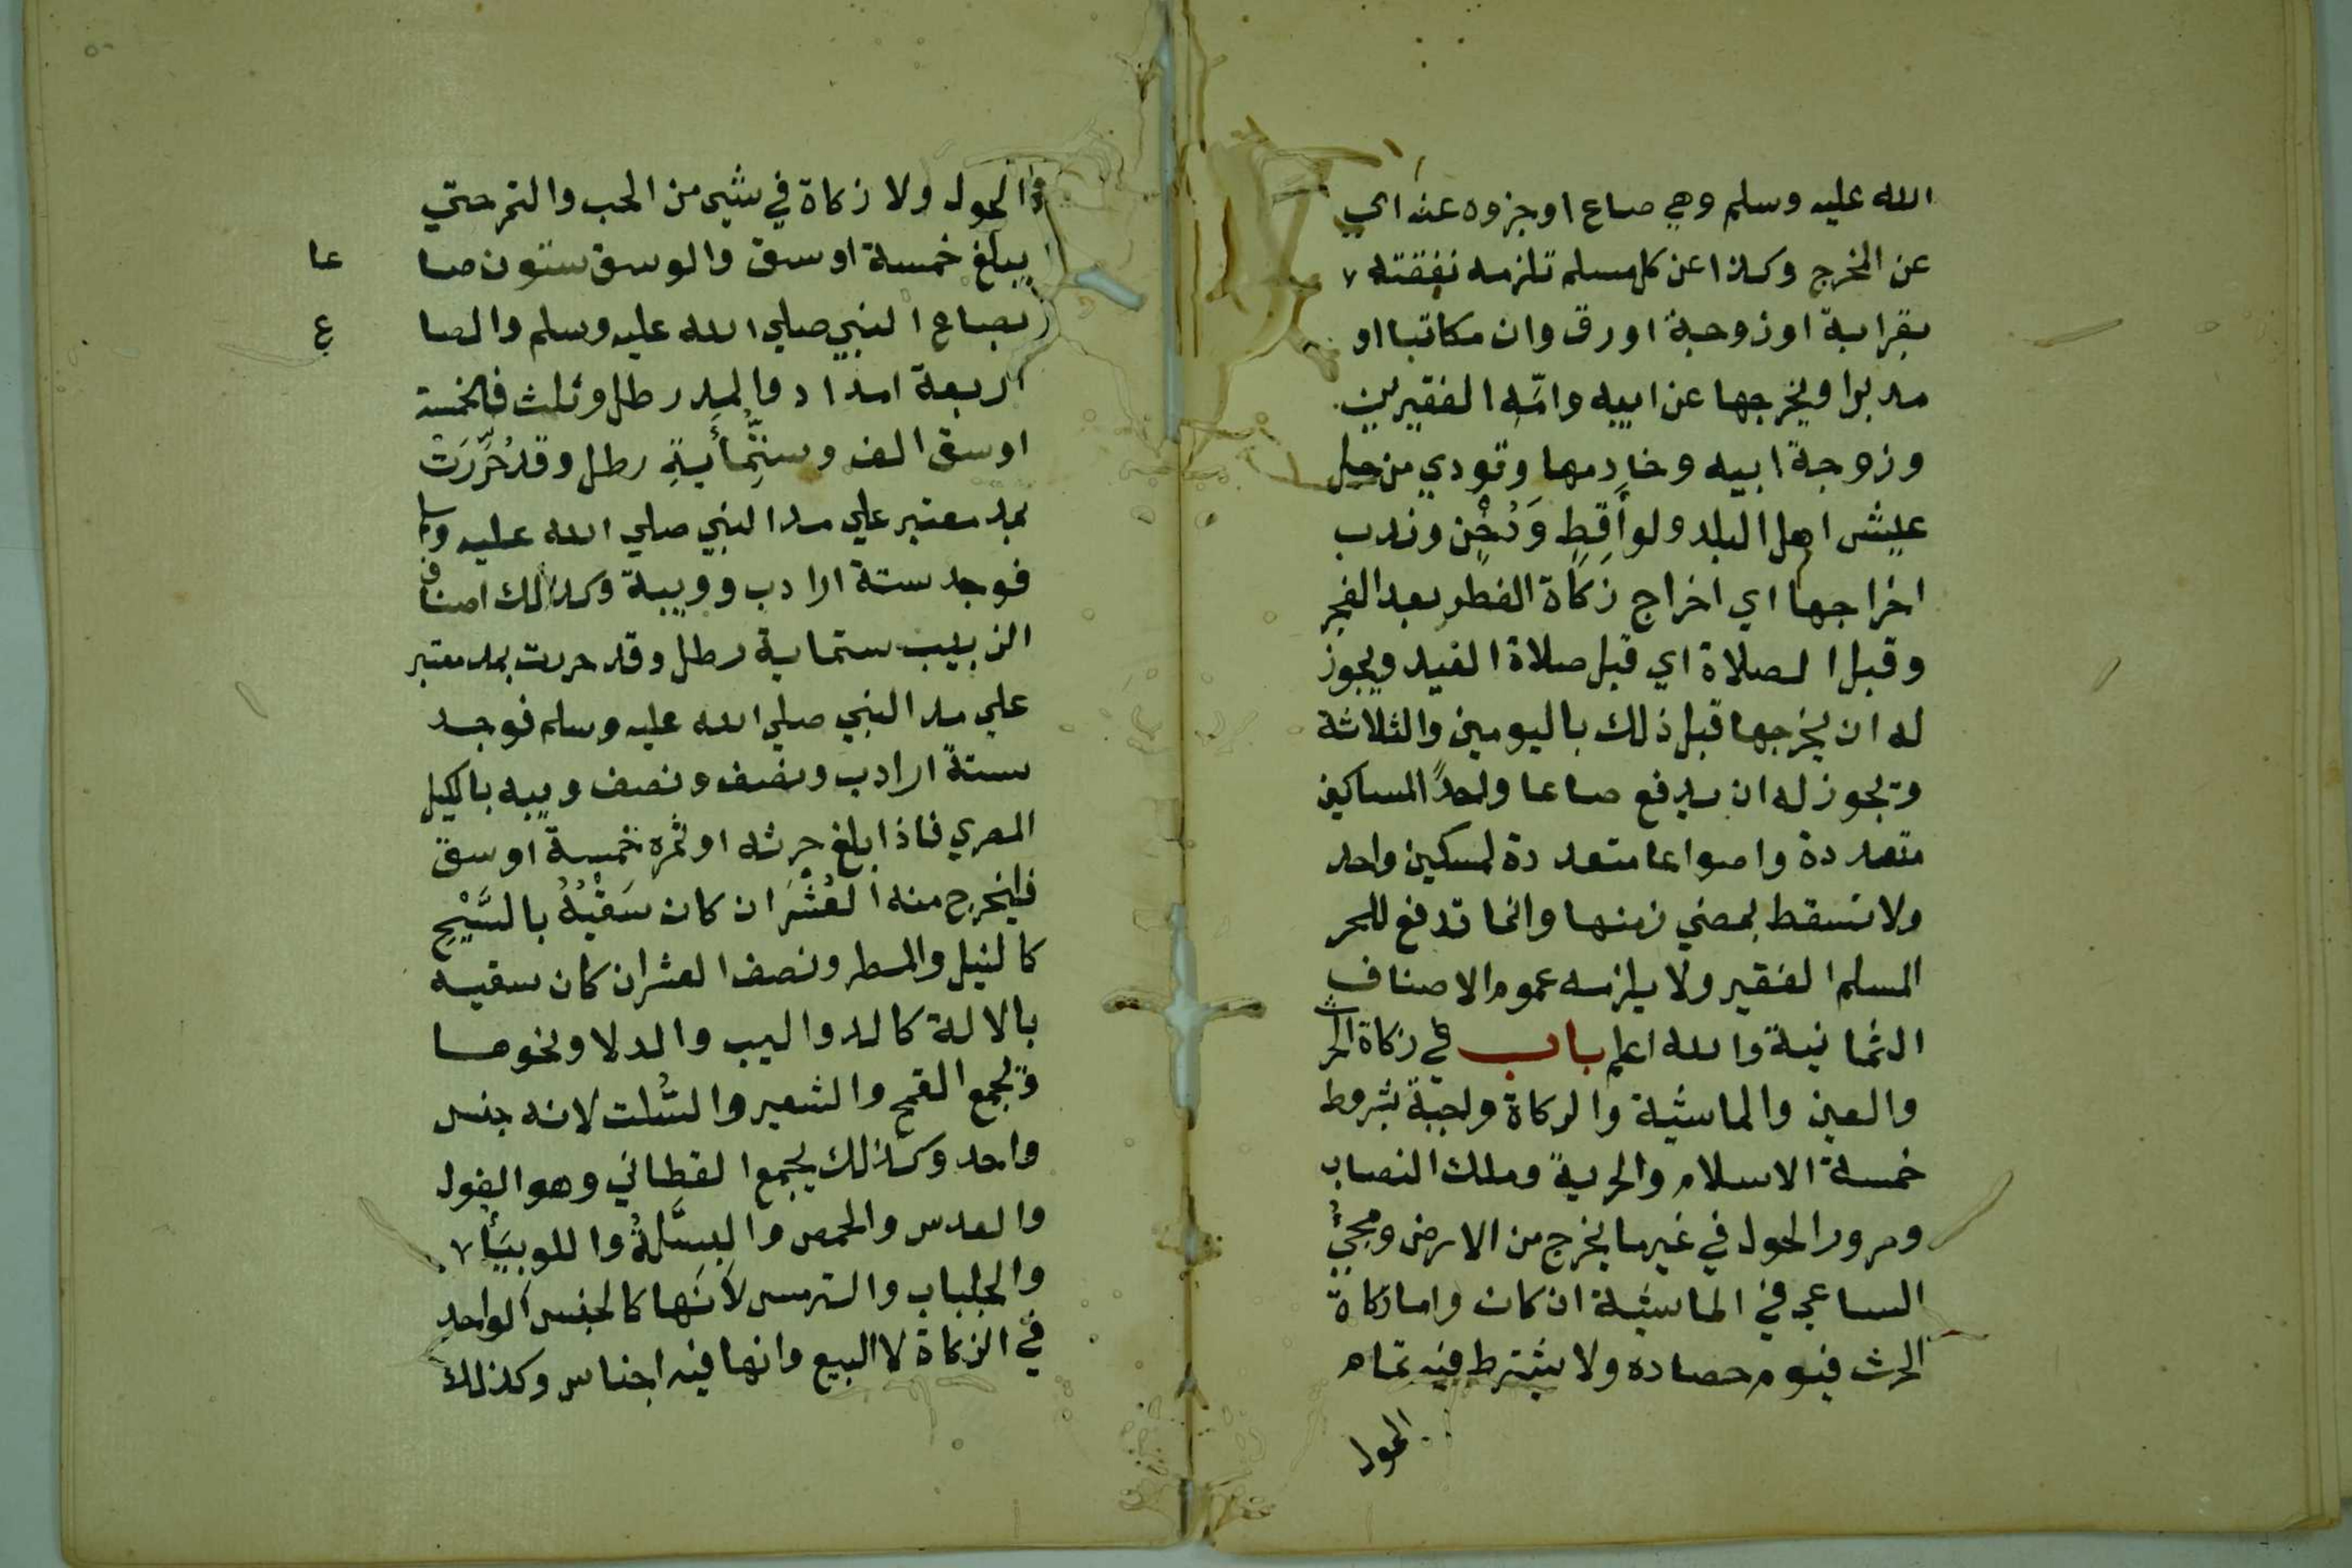 الله عليه وسلم وهي صاع او جزوه عنه اي
عن المخرج وكذا عن كل مسلم تلزمه نفقته
بقرابة او زوجية او رق وان مكاتبا او
مدبرا ويخرجها عن ابيه وامّه الفقيرين
وزوجة ابيه وخادمها وتودي من جل
عيش اهل البلد ولو أَقِطٍ وَدُخْنٍ وندب
اخراجها اي اخراج زكاة الفطر بعد الفجر
وقبل الصلاة اي قبل صلاة العيد ويجوز
له ان يخرجها قبل ذلك باليومين والثلاثة
ويجوز له ان يدفع صاعا واحدًا لمساكين
متعددة واصواعا متعددة لمسكين واحد
ولا تسقط بمضي زمنها وانما تدفع للحر
المسلم الفقير ولا يلزمه عموم الاصناف
الثمانية والله اعلم باب في زكاة الحرث
والعين والماشية والزكاة واجبة بشروط
خمسة الاسلام والحرية وملك النصاب
ومرور الحول في غير ما يخرج من الارض ومجيُّ
الساعي في الماشية ان كان واما زكاة
الحرث فيوم حصاده ولا يشترط فيه تمام
الحول
الحول ولا زكاة في شيء من الحب والتمر حتي
يبلغ خمسة اوسق والوسق ستون صا عا
بصاع النبي صلي الله عليه وسلم والصا ع
اربعة امداد والمد رطل وثلث فالخمسة
اوسق الف وستِّمأيةِ رطل وقد حُرِّرَتْ
بمد معتبر علي مد النبي صلي الله عليه وسلم
فوجد ستة ارادب وويبة وكذلك اصناف
الزبيب ستماية رطل وقد حررت بمد معتبر
علي مد النبي صلي الله عليه وسلم فوجد
ستة ارادب ونصف ونصف ويبه بالكيل
المصري فاذا بلغ حرثه او ثمره خمسة اوسق
فليخرج منه العُشْرَ ان كان سَقْيُهُ بالسَّيْحِ
كالنيل والمطر ونصف العشر ان كان سقيه
بالالة كالدواليب والدلا ونحوها
ويجمع القمح والشعير والسُّلت لانه جنس
واحد وكذلك يجمع القطاني وهو الفول
والعدس والحمص والبسلّةُ واللوبيَأ
والجلباب والترمس لأنّها كالجنس الواحد
في الزكاة لا البيع وانها فيه اجناس وكذلك